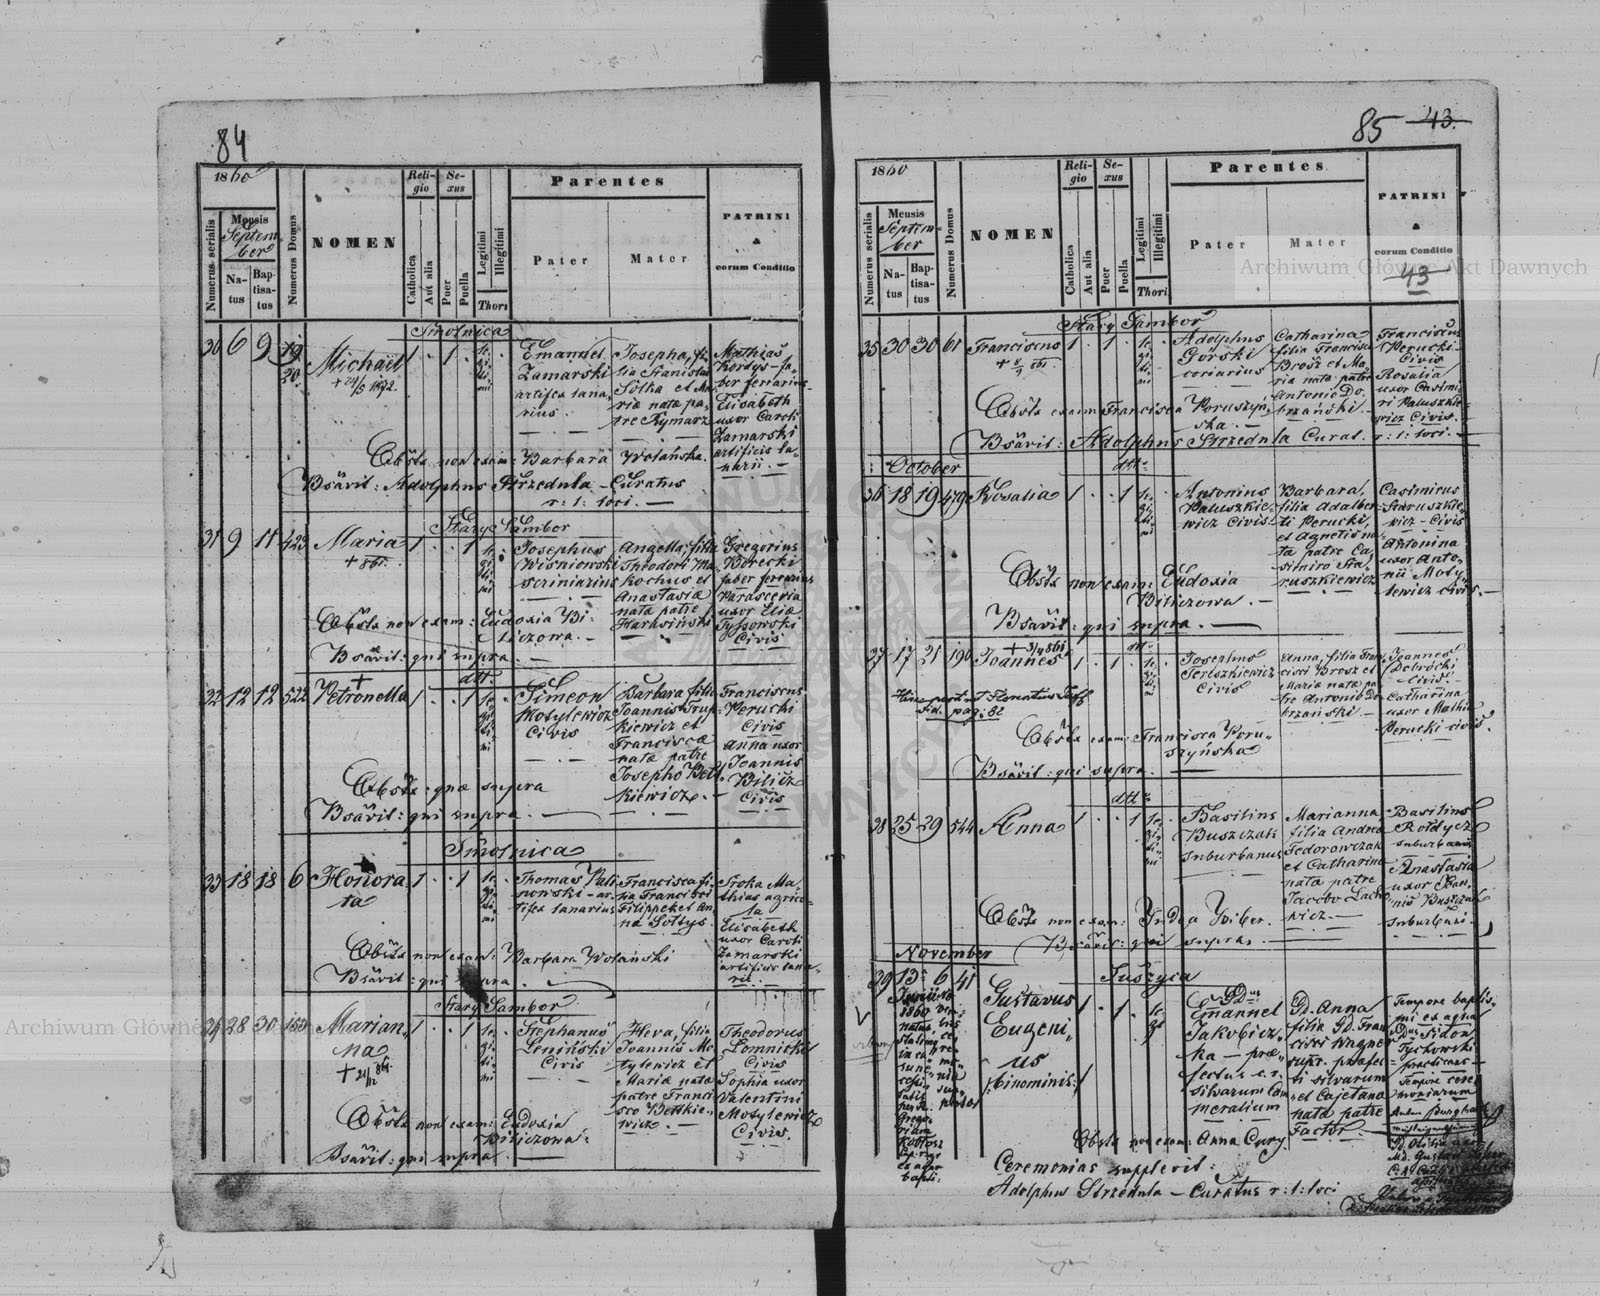 84
1860
Numerus serialis
Mensis
Septem
ber
Natus
Baptisatus
Numerus Domus
NOMEN
Religio
Catholica
Aut alia
Sexus
Puer
Puella
Legitimi
Illegitimi
Thori
Parentes
Pater
Mater
PATRINI
&
eorum Conditio
Smolnica
20 6 9 19 20.
Michaël
+ 24/5 1872.
1 . 1 .
Emanuel
Zamarski
artifex lana,
rius.
Josepha, fi,
lia Stanislai
Solka et Ma,
riæ natæ pa,
tre Rymarz
Mathias
Kordys - fa,
ber ferrarius
Elisabeth
uxor Caroli
Zamarski
artificis la,
narii. —
Obstx non exam: Barbara Wolańska.
Bsävit: Adolphus Strzedula - Curatus
r: l: loci. —
Stary Sambor
21 9 11 423
Maria
+ 861.
1 . . 1
Josephus
Wisniowski
scriniarius
Angella, filia
Theodori Ma,
kochus et
Anastasia
nata patre
Gregorius
Borecki
faber ferrarius
Parasceria
uxor Eliæ
Tyssowski
Civis
Obstx non exam: Eudoxia Bi,
liczowa. -
Bsävit: qui supra. —
dtt.
22 12 12 522
+
Petronella
1 . . 1
Simeon
Motylewicz
Civis
Barbara filia
Joannis Trup,
kiewicz et
Franciscæ
natæ patre
Josepho Bett,
kiewicz. -
Franciscus
Perucki
Civis
Anna uxor
Joannis
Bilicz
Civis
Obstx: quæ supra
Bsävit: qui supra. —
Smolnica
23 18 18 6
+
Honora
ta
1 . . 1
Thomas Pali
nowski - ar,
tifex lanarius
Francisca fi,
lia Francisci
Filippek et An
na Soltys.
Sroka Ma,
thias agrico,
la
Elisabeth
uxor Caroli
Zamarski
artificis lana,
rii. —
Obstx non exam: Barbara Wolański
Bsävit: qui supra
Stary Sambor
24 28 30 153
Marian,
na
+ 21/12 861.
1 . . 1
Stephanus
Leniński
Civis
Hera, filia
Joannis Mo
tylewicz et
Mariæ natæ
patre Franci
sco Bettkie,
wicz. —
Theodorus
Lomnicki
Civis
Sophia uxor
Valentini
Motylewicz
Civis.
Obstx non exam: Eudoxia
Biliczowa.
Bsävit: qui supra. —
85 43.
1860
Numerus serialis
Mensis
Septem
ber
Natus
Baptisatus
Numerus Domus
NOMEN
Religio
Catholica
Aut alia
Sexus
Puer
Puella
Legitimi
Illegitimi
Thori
Parentes
Pater
Mater
PATRINI
&
eorum Conditio
43
Stary Sambor
25 30 30 61
Franciscus
1 . 1 .
Adolphus
Górski
coriarius
Catharina
filia Francisci
Brosz et Ma,
ria nata patre
Antonio Do,
brzański. —
Franciscus
Perucki
Civis
Rosalia
uxor Casimi,
ri Paluszkie,
wicz Civis.
Obstx exam: Francisca Poruszyn,
ska. —
Bsävit: Adolphus Strzedula Curat. r: l: loci. —
October
dtt
26 18 19 479
Rosalia
1 . . 1
Antonius
Paluszkie,
wicz Civis
Barbara,
filia Adalber
ti Perucki,
et Agnetis na,
ta patre Ca,
simiro Sta,
ruszkiewicz
Casimirus
Staruszkie,
wicz - Civis
Antonina
uxor Anto,
nii Moty,
lewicz civis. —
Obstx non exam: Eudoxia
Biliczowa. —
Bsävit: qui supra. —
dtt
27 17 21 190
+ 3/4 861
Joannes
1 . 1 .
Josephus
Tereszkiewicz
Civis
Anna, filia Fran
cisci Brosz et
Maria nata pa,
tre Antonio Do
brzański. —
Joannes
Dobrócki
Civis.
Catharina
uxor Mathiæ
Perucki civis.
pag: 82
Obstx exam: Francisca Poru,
szyńska
Bsävit: qui supra. —
dtt
28 25 29 544
Anna
1 . . 1
Basilius
Buszczak
suburbanus
Marianna
filia Andreæ
Fedorowczak
et Catharinæ
natæ patre
Jacobo Lach,
wicz. —
Basilius
Roldycz
suburbanus
Anastasia
uxor Joan,
nis Buszczak
suburbani. —
Obstx non exam:
Bsävit: qui supra. —
November
Suszyca
29 13 6 41
Junii
1860
natus,
statim
Gustavus
Eugeni,
us
/:binominis:/
1 . 1 .
Gdus
Emanuel
Jakobicz,
ka — præ,
fectus c. r.
silvarum Ca,
meralium
Gd. Anna
filia Gd. Fran
cisci Wagner
supr. præfec
ti silvarum
et Cajetana
nata patre
Factor. —
Tempore baptis,
mi ex aqua
Gdus Sidon
Tychowski
practicans
Tempore cere,
moniarum
Obstx non exam: Anna Cury
Ceremonias supplevit:
Adolphus Strzedula — Curatus r: l: loci
Archiwum Główne Akt Dawnych